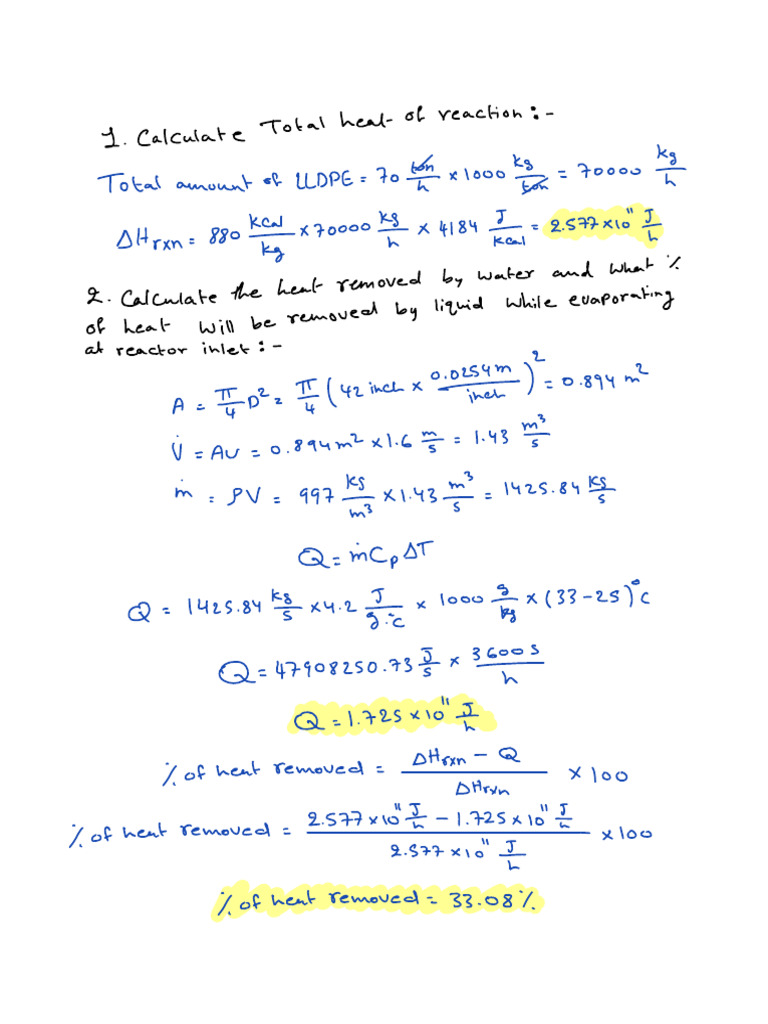 1. Calculate Total heat of reaction :-
Total amount of LLDPE = 70 ton/h × 1000 kg/ton = 70000 kg/h
ΔHrxn = 880 kcal/kg × 70000 kg/h × 4184 J/kcal = 2.577×10¹¹ J/h
2. Calculate the heat removed by water and what %
of heat will be removed by liquid while evaporating
at reactor inlet :-
A = π/4 D² = π/4 (42 inch × 0.0254m/inch)² = 0.894 m²
V̇ = Av = 0.894m² × 1.6 m/s = 1.43 m³/s
ṁ = ρV = 997 kg/m³ × 1.43 m³/s = 1425.84 kg/s
Q = ṁCpΔT
Q = 1425.84 kg/s × 4.2 J/g.°C × 1000 g/kg × (33-25)°C
Q = 47908250.73 J/s × 3600s/h
Q = 1.725×10¹¹ J/h
% of heat removed = ΔHrxn - Q/ΔHrxn × 100
% of heat removed = 2.577×10¹¹ J/h - 1.725×10¹¹ J/h/2.577×10¹¹ J/h × 100
% of heat removed = 33.08%